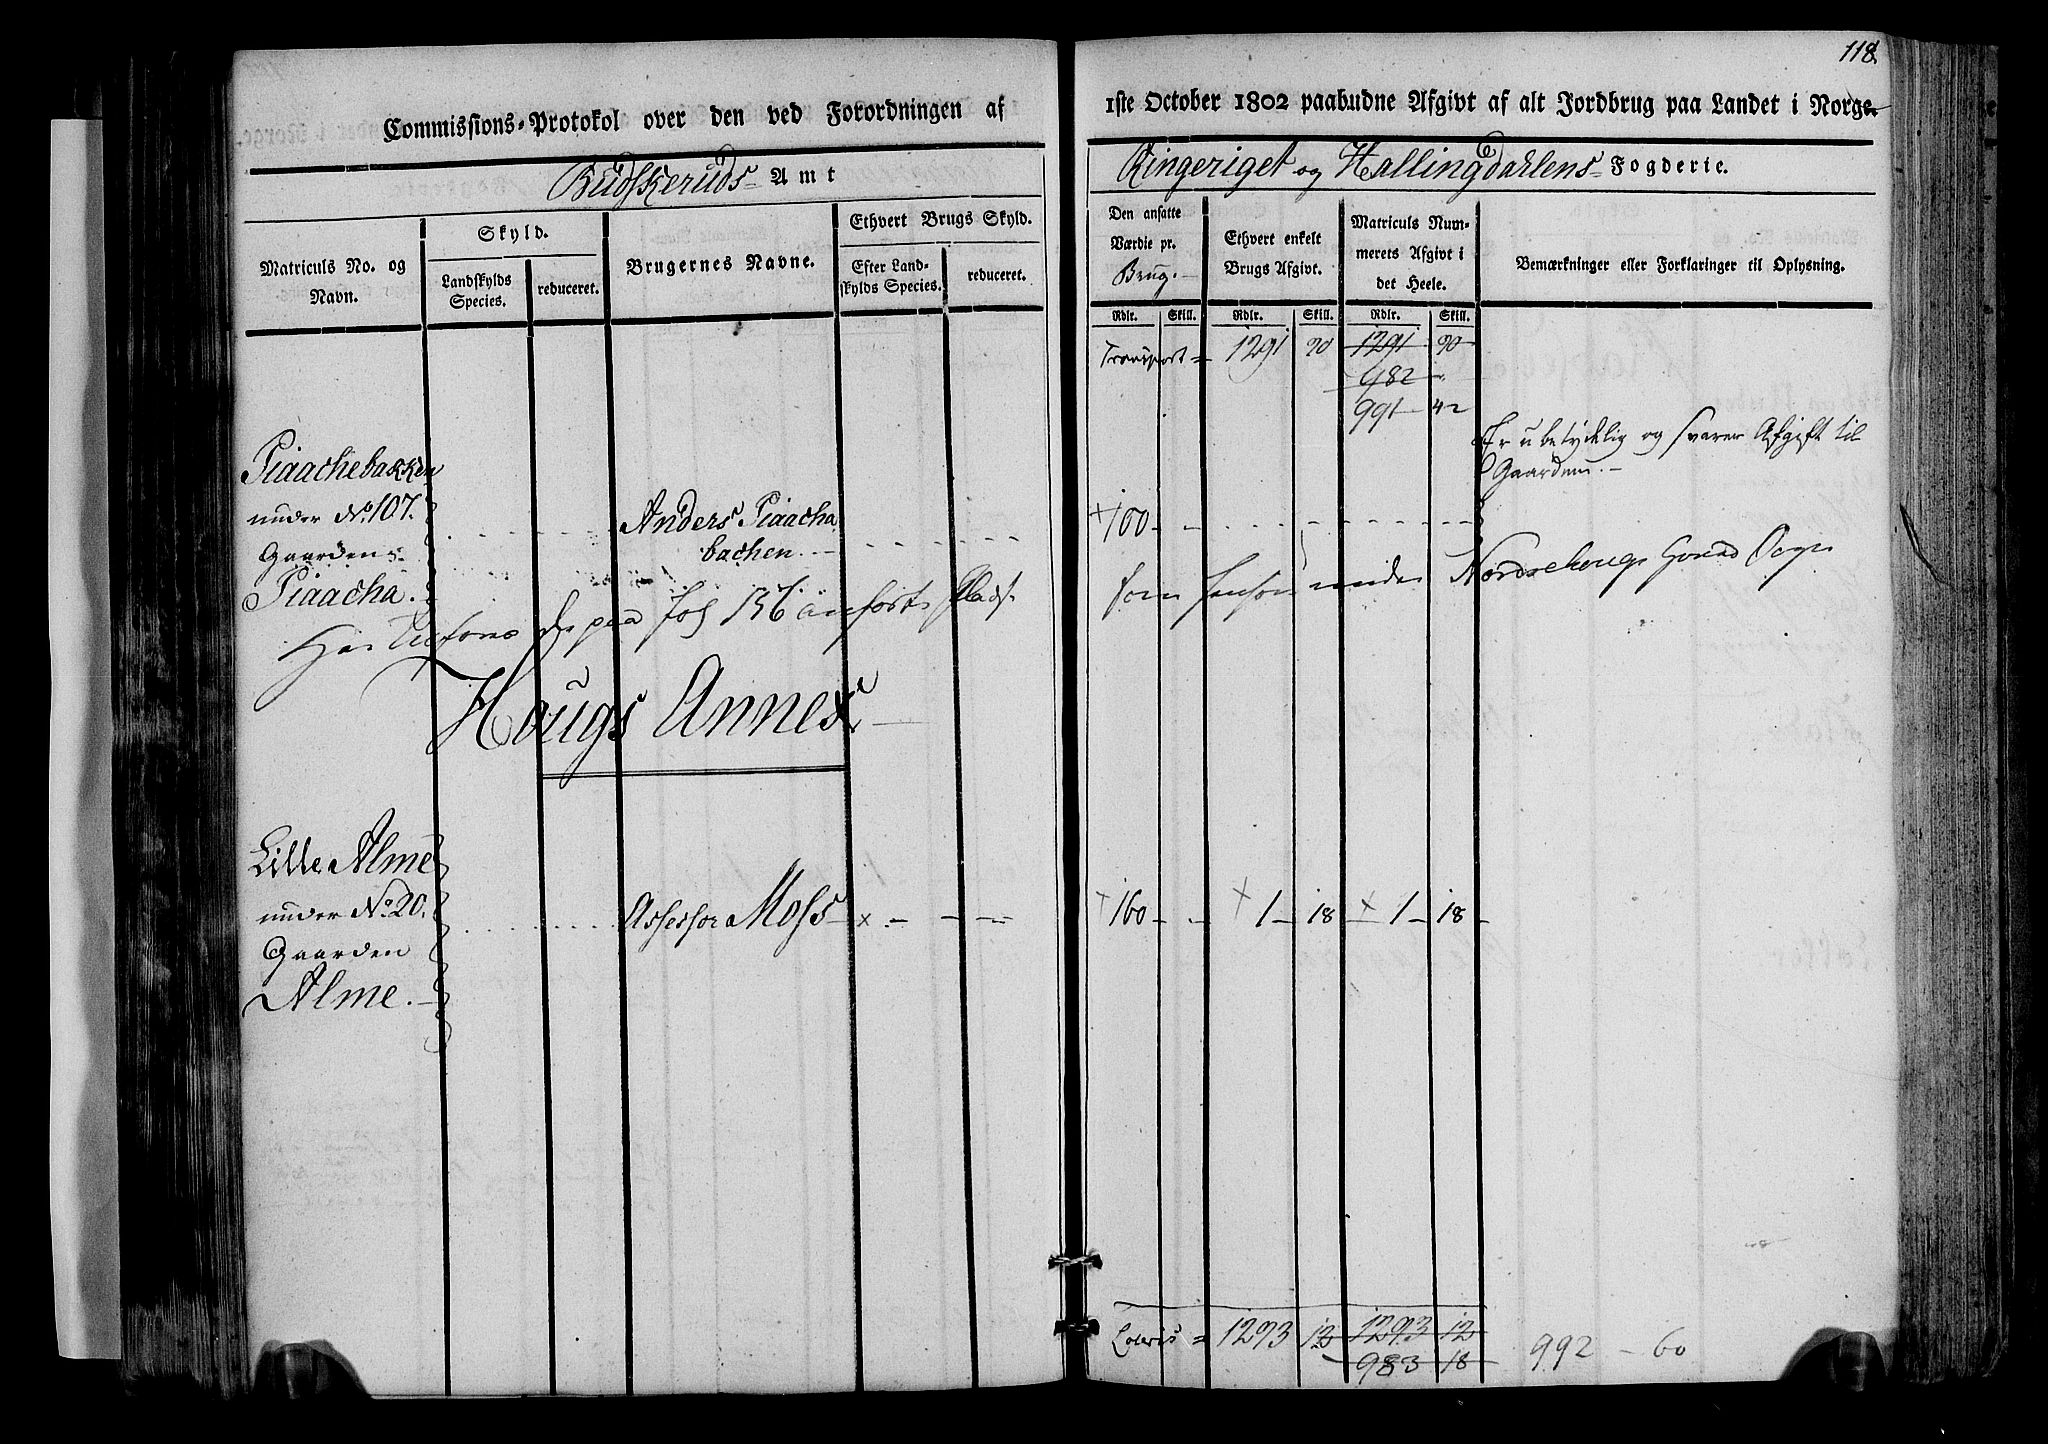 118.
Commissions-Protokol over den ved Forordningen af
1ste October 1802 paabudne Afgivt af alt Jordbrug paa Landet i Norge.
Budskeruds Amt
Ringeriget og Hallingdahlens Fogderie.
Matriculs No. og Navn.
Skyld.
Landskylds Species.
reduceret.
Brugernes Navne.
Ethvert Brugs Skyld.
Efter Landskylds Species.
reduceret.
Den ansatte Værdie pr. Brug.
Ethvert enkelt Brugs Afgivt.
Matriculs Nummerets Afgivt i det Heele.
Bemærkninger eller Forklaringer til Oplysning.
Rdlr. Skill. Rdlr. Skill. Rdlr. Skill.
Transport = 1291 90 1291 90
982
991 42
Er ubetydelig og svarer Afgift til
Gaarden.
Piaachebakken
under No. 107.
Gaarden
Piaacha.
Anders Piaacha
bachen.
100
paa Fol 136 anførte Plads
som under
Hougs Annex
Lille Alme
under No. 20.
Gaarden
Alme.
Assessor Moss
160 1 18 1 18
Lateris = 1293 12 1293 12
983 18
992 - 60